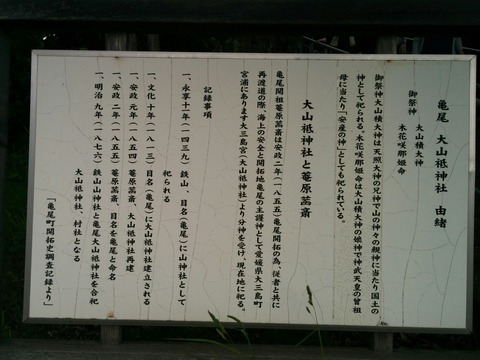 亀尾 大山祗神社 由緒
御祭神 大山積大神
木花咲耶姫命
御祭神大山積大神は天照大神の兄神で山の神々の親神に当たり国土の
神として祀られる。木花咲耶姫命は大山積大神の娘神で神武天皇の曽祖
母に当たり「安産の神」としても祀られている。
大山祗神社と菴原菡斎
亀尾開祖菴原菡斎は安政二年(一八五五)亀尾開拓の為、従者と共に
再渡道の際、海上の安全と開拓地亀尾の主護神として愛媛県大三島町
宮浦にあります大三島宮(大山祗神社)より分神を受け、現在地に祀る。
記録事項
一、永享十一(一四三九)鉄山、目名(亀尾)に山神社として
祀られる
一、文化十年(一八一三)目名(亀尾)に大山祗神社建立される
一、安政元年(一八五四)菴原菡斎、大山祗神社再建
一、安政二年(一八五五)菴原菡斎、目名を亀尾と命名
一、明治九年(一八七六)鉄山山神社と亀尾大山祗神社を合祀
大山祗神社、村社となる
「亀尾町開拓史調査記録より」